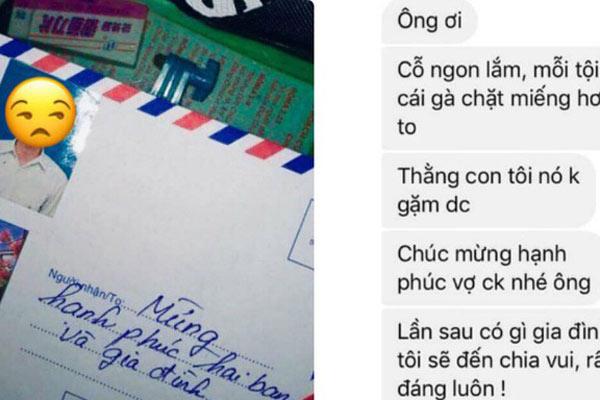 Người nhận/To:
Mừng
hạnh phúc hai bạn
và gia đình
Ông ơi
Cỗ ngon lắm, mỗi tội
cái gà chặt miếng
to
Thằng con tôi nó k
gặm dc
Chúc mừng hạnh
phúc vợ ck nhé ông
Lần sau có gì gia
tôi sẽ đến chia vui,
đáng luôn !